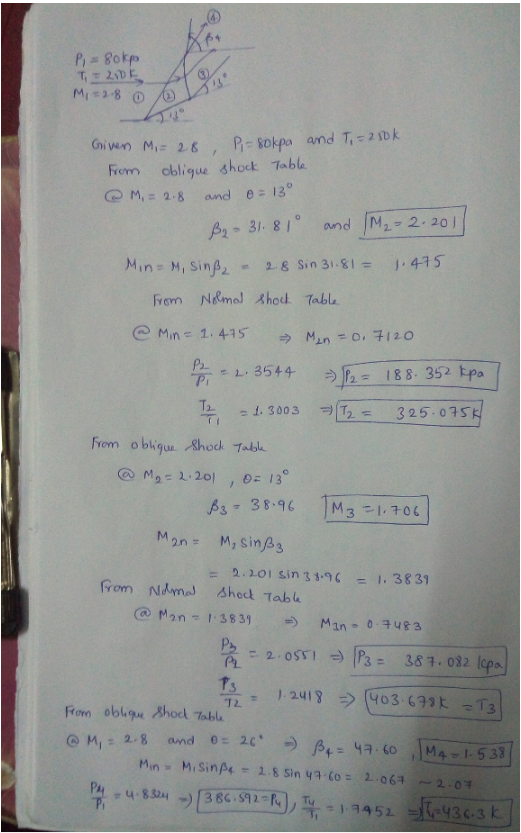 ④
β₄
P₁ = 80kpa
T₁ = 250K
M₁ = 2.8 ① ② ③ 13°
13°
Given M₁ = 2.8 , P₁ = 80kpa and T₁ = 250k
From oblique shock Table
@ M₁ = 2.8 and θ = 13°
β₂ = 31.81° and M₂ = 2.201
M₁n = M₁ Sinβ₂ = 2.8 Sin 31.81 = 1.475
From Normal shock Table
@ M₁n = 1.475 ⇒ M₂n = 0.7120
P₂/P₁ = 2.3544 ⇒ P₂ = 188.352 kpa
T₂/T₁ = 1.3003 ⇒ T₂ = 325.075K
From oblique shock Table
@ M₂ = 2.201 , θ = 13°
β₃ = 38.96 M₃ = 1.706
M₂n = M₂ Sinβ₃
= 2.201 sin 38.96 = 1.3839
From Normal shock Table
@ M₂n = 1.3839 ⇒ M₃n = 0.7483
P₃/P₂ = 2.0551 ⇒ P₃ = 387.082 kpa
T₃/T₂ = 1.2418 ⇒ 403.678K = T₃
From oblique shock Table
@ M₁ = 2.8 and θ = 26° ⇒ β₄ = 47.60 , M₄ = 1.538
M₁n = M₁Sinβ₄ = 2.8 Sin 47.60 = 2.067 ~ 2.07
P₄/P₁ = 4.8324 ⇒ 386.592 = P₄ , T₄/T₁ = 1.7452 ⇒ T₄ = 436.3 K